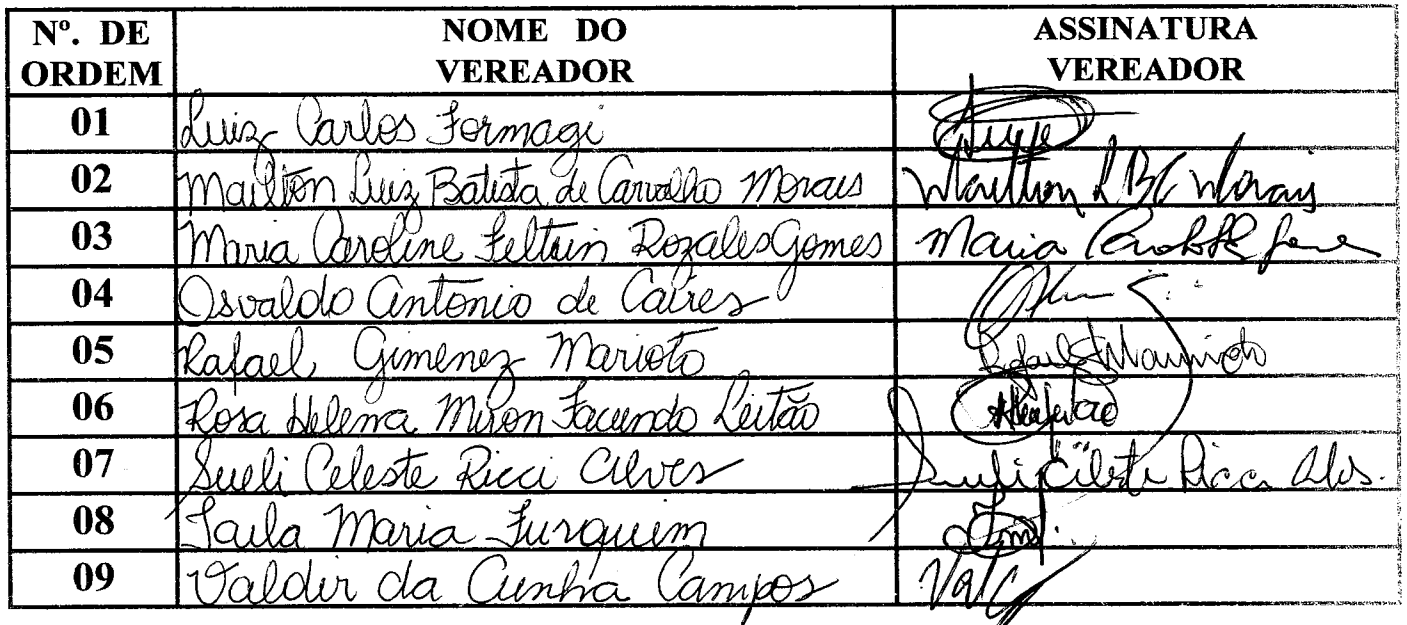 Nº. DE ORDEM NOME DO VEREADOR ASSINATURA VEREADOR
01 Luiz Carlos Formagi
02 Mailton Luiz Batista de Carvalho Morais Mailton L B C Morais
03 Maria Caroline Feltrin Rozales Gomes Maria
04 Osvaldo Antonio de Caires
05 Rafael Gimenez Marioto Rafael
06 Rosa Helena Miron Facundo Leitão
07 Sueli Celeste Ricci Alves Sueli Celeste Ricci Alves.
08 Taila Maria Furquim
09 Valdir da Cunha Campos